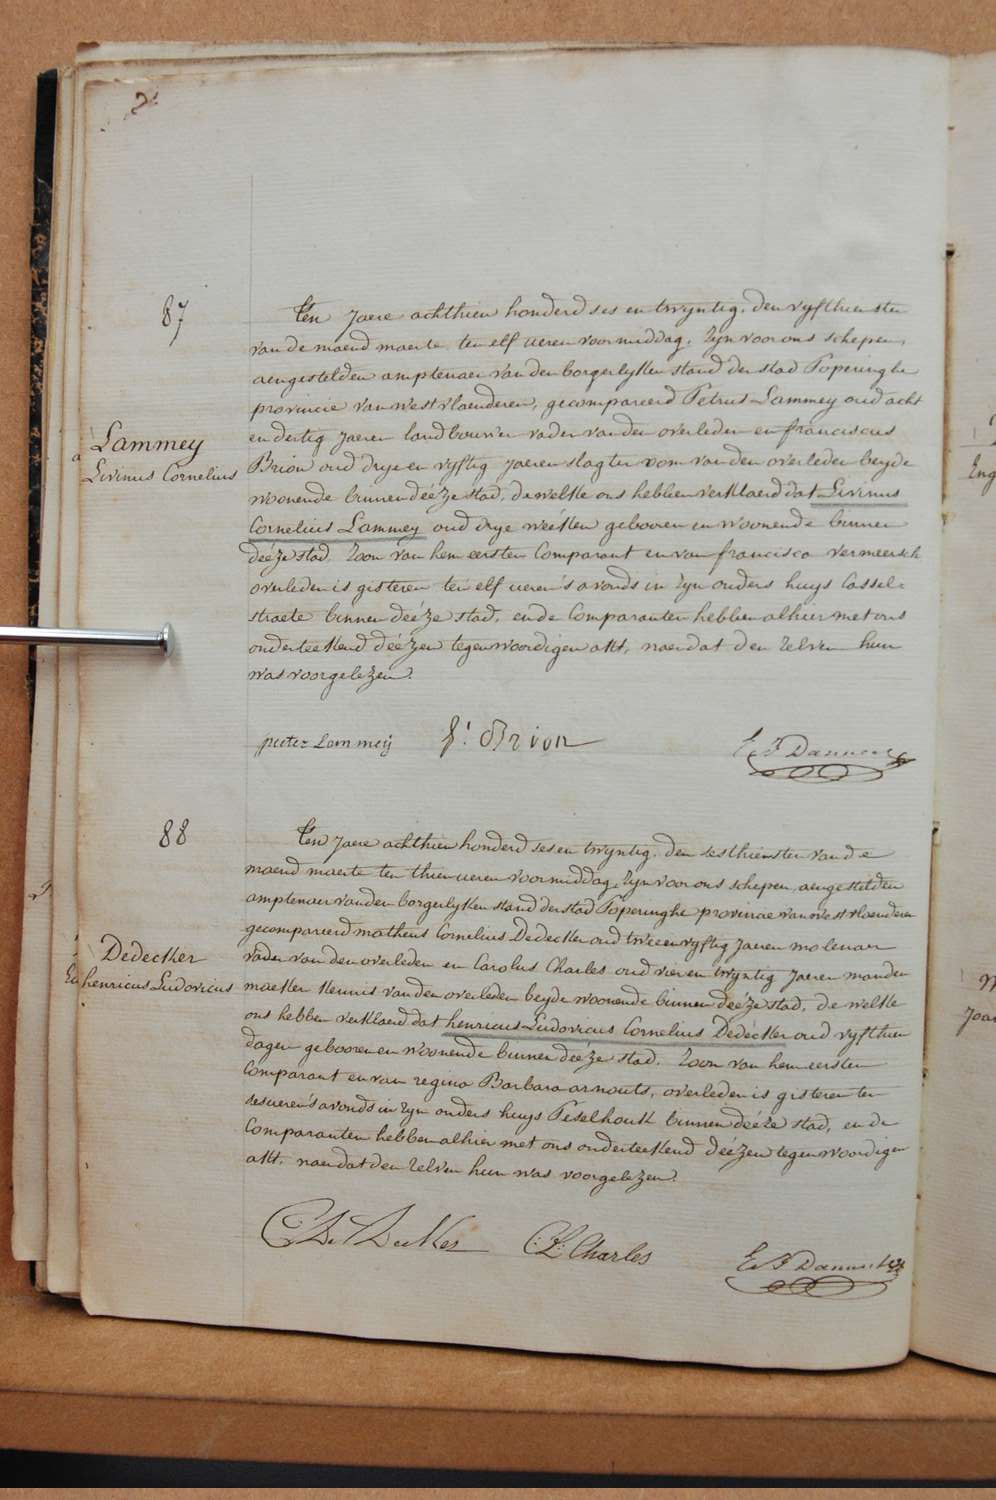 2
87
Lammey
Livinus Cornelius
Ten Jaere achthien honderd ses en twyntig. den vyfthiensten
van de maend maerte ten elf ueren voormiddag. Zyn voor ons schepen,
aengestelden amptenaer van den borgerlyken stand der stad Poperinghe
provincie van westvlaenderen, gecompareerd Petrus Lammey oud acht
en dertig jaeren landbouwer vader van den overleden en franciscus
Brion oud drye en vyftig jaeren slagter oom van den overleden beyde
woonende binnen deéze stad, de welke ons hebben verklaerd dat Livinus
Cornelius Lammey oud drye weéken gebooren en woonende binnen
deéze stad. Zoon van hem eersten Comparant en van francisca vermeersch
overleden is gisteren ten elf ueren 's avonds in zyn ouders huys Cassel=
straete binnen deéze stad, en de Comparanten hebben alhier met ons
onderteekend deézen tegenwoordigen akt, naer dat den zelven hun
was voorgelezen.
pieter Lammeÿ
f: Brion
88
Dedecker
henricus Ludovicus
Ten Jaere achthien honderd ses en twyntig. den sesthiensten van de
maend maerte ten thien ueren voormiddag, Zyn voor ons schepen, aengestelden
amptenaer van den borgerlyken stand der stad Poperinghe provincie van westvlaenderen
gecompareerd matheus Cornelius Dedecker oud twee en vyftig Jaeren molenaer
vader van den overleden en Carolus Charles oud vier en twyntig Jaeren manden
maeker kennis van den overleden beyde woonende binnen deéze stad, de welke
ons hebben verklaerd dat henricus Ludovicus Cornelius Dedecker oud vyfthien
dagen gebooren en woonende binnen deéze stad. Zoon van hem eersten
Comparant en van regina Barbara arnouts, overleden is gisteren ten
ses ueren 's avonds in zyn ouders huys Peselhouk binnen deéze stad, en de
Comparanten hebben alhier met ons onderteekend deézen tegenwoordigen
akt. naer dat den zelven hun was voorgelezen.
C: L: Charles